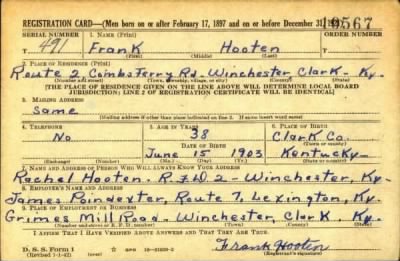 REGISTRATION CARD—(Men born on or after February 17, 1897 and on or before December 31,
SERIAL NUMBER 1. NAME (Print) ORDER NUMBER
10567
491 Frank Hooten
(First) (Middle) (Last)
2. PLACE OF RESIDENCE (Print)
Route 2 Combsferry Rd Winchester Clark Ky.
[THE PLACE OF RESIDENCE GIVEN ON THE LINE ABOVE WILL DETERMINE LOCAL BOARD
JURISDICTION; LINE 2 OF REGISTRATION CERTIFICATE WILL BE IDENTICAL]
3. MAILING ADDRESS
Same
[Mailing address if other than place indicated on line 2. If same insert word same]
4. TELEPHONE 5. AGE IN YEARS 6. PLACE OF BIRTH
No 38 Clark Co.
DATE OF BIRTH (Town or county)
June 15 1903 Kentucky
(Exchange) (Number) (Mo.) (Day) (Yr.) (State or country)
7. NAME AND ADDRESS OF PERSON WHO WILL ALWAYS KNOW YOUR ADDRESS
Rachel Hooten. R.F.D. 2 - Winchester, Ky.
8. EMPLOYER'S NAME AND ADDRESS
James Poindexter, Route 7, Lexington, Ky.
9. PLACE OF EMPLOYMENT OR BUSINESS
Grimes Mill Road - Winchester, Clark, Ky.
(Number and street or R. F. D. number) (Town) (County) (State)
I AFFIRM THAT I HAVE VERIFIED ABOVE ANSWERS AND THAT THEY ARE TRUE.
D. S. S. Form 1
(Revised 1-1-42) (over)
Frank Hooten